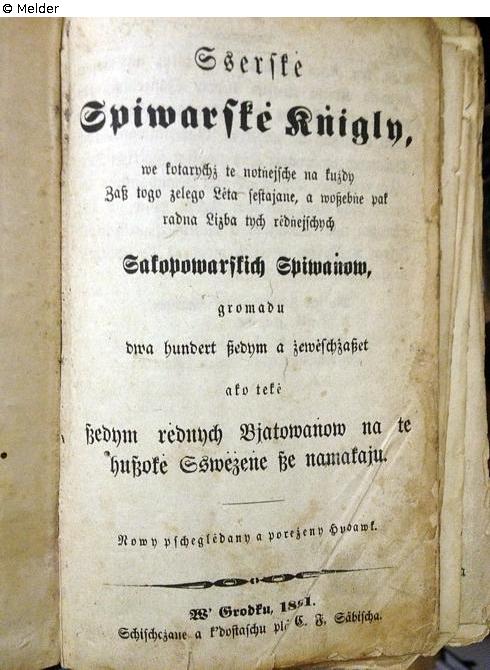 © Melder
Sserske
Spiwarskė Kṅigly,
we kotarychż te notṅejsche na kużdy
Zaß togo zelego Lėta sestajane, a woßebṅe pak
radna Lizba tych rėdnejschych
Sakopowarskich Spiwaṅow,
gromadu
dwa hundert ßedym a żewėschżaßet
ako tekė
ßedym rėdnych Bjatowaṅow na te
hußokė Sswėżeṅe ße namakaju.
Nowy pscheglėdany a poreżeny Hydawk.
W' Grodku,
Schischcżane a k'dostaschu pla C. F. Säbischa.